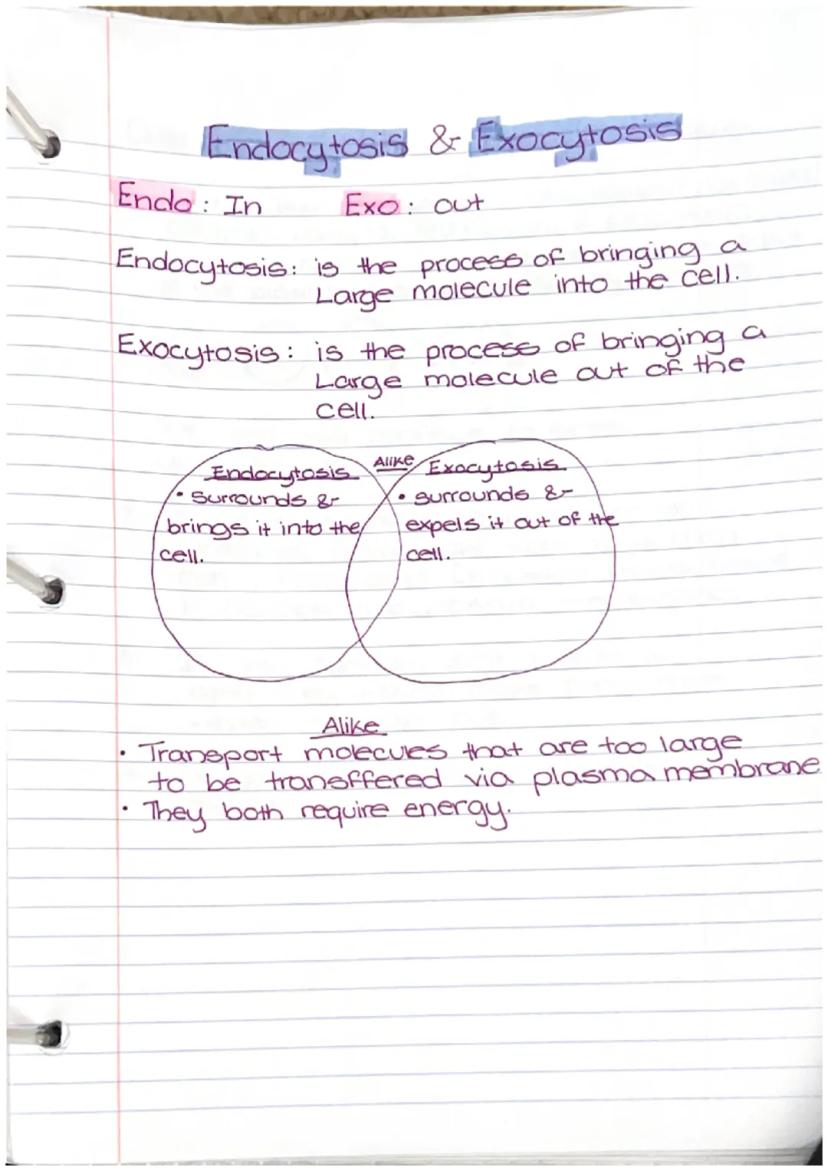 Endocytosis & Exocytosis
Endo : In Exo : out
Endocytosis: is the process of bringing a
Large molecule into the cell.
Exocytosis : is the process of bringing a
Large molecule out of the
cell.
Alike
Endocytosis
• Surrounds &
brings it into the
cell.
Exocytosis
• surrounds &
expels it out of the
cell.
Alike
• Transport molecules that are too large
to be transffered via plasma membrane
• They both require energy.